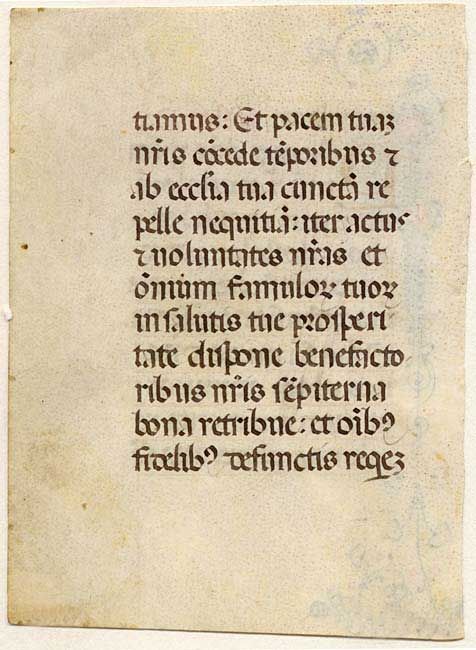 tiamus: Et pacem tuaꝫ
nr̄is cōcede tēporibus ⁊
ab eccl̄ia tua cunctā re
pelle nequitiā: iter actus
⁊ uoluntates nr̄as et
ōnium famuloꝝ tuoꝝ
in salutis tue prosperi
tate dispone benefacto
ribus nr̄is sēpiterna
bona retribue: et oīb₉
fidelib₉ defunctis reqēꝫ